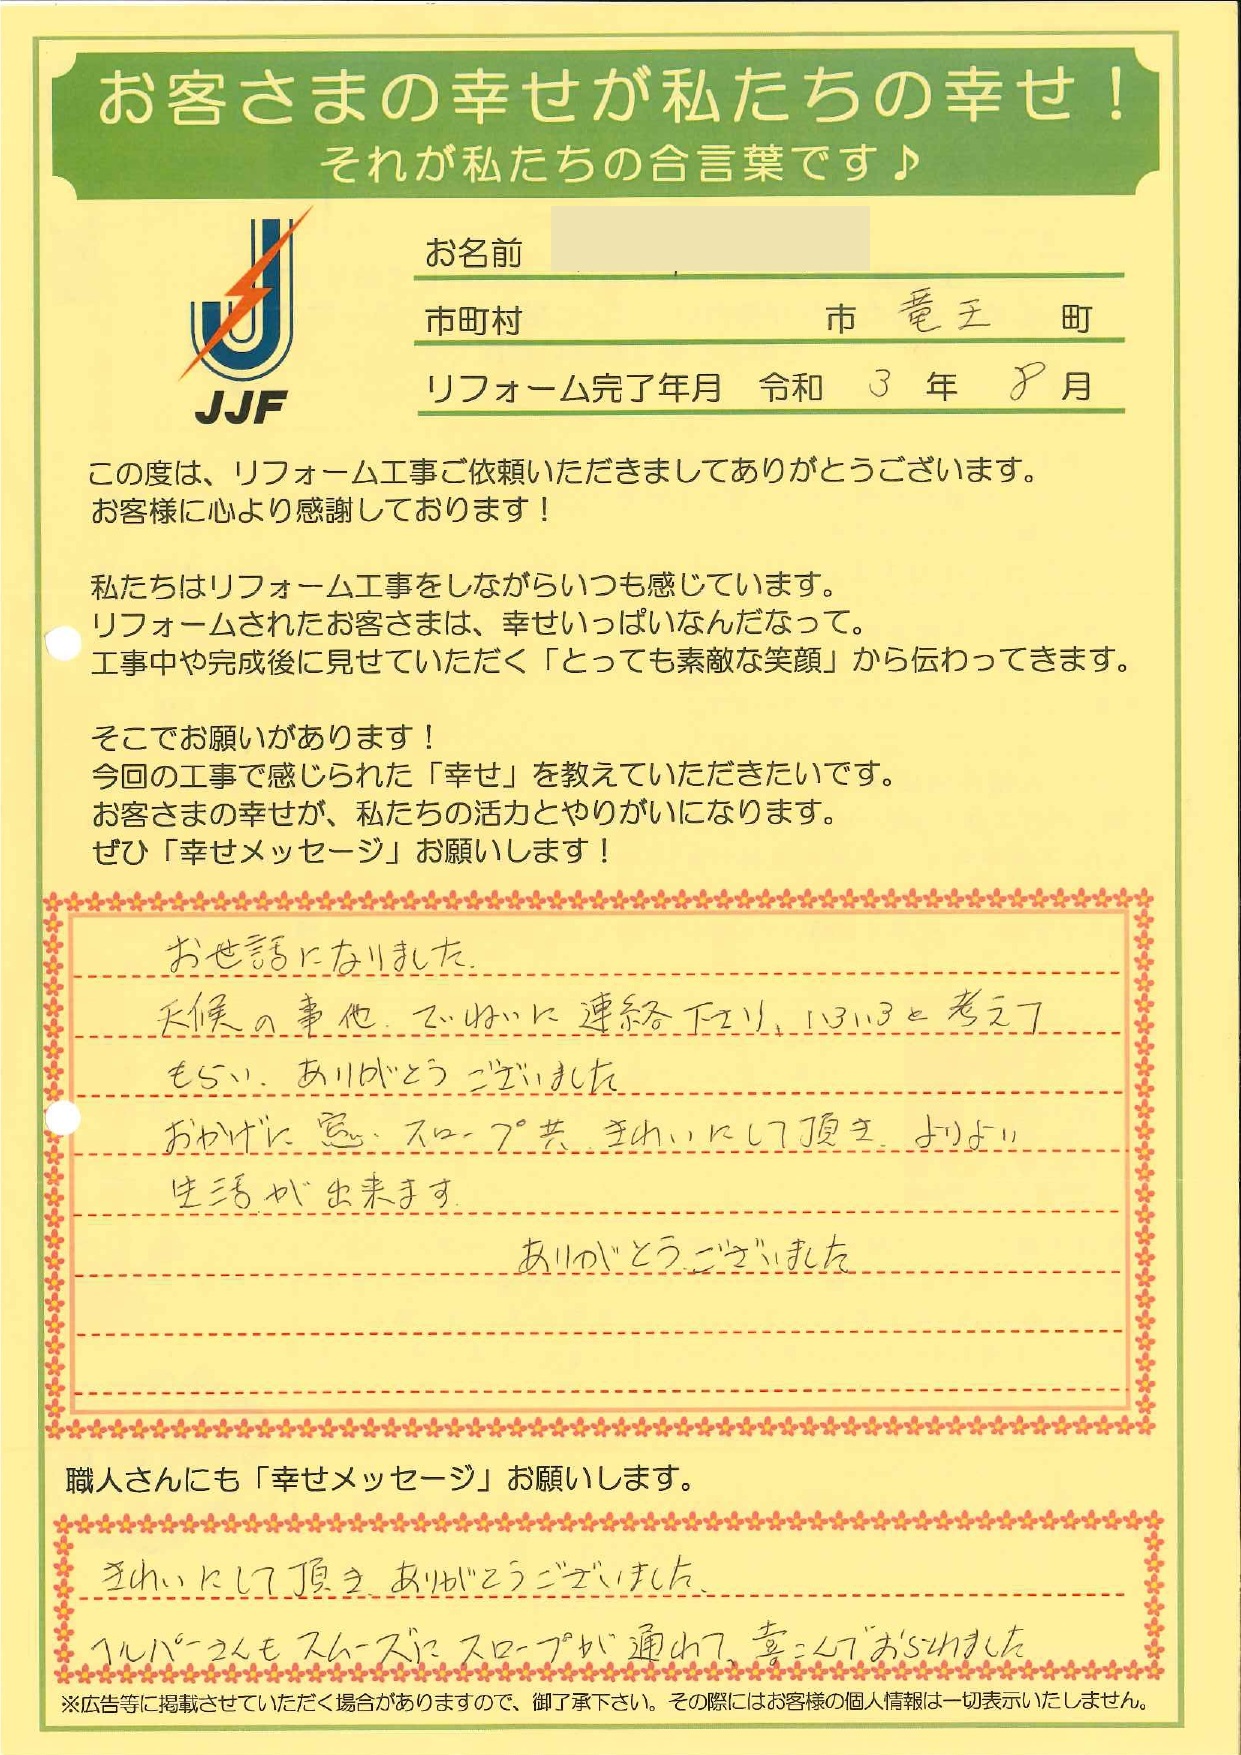 お客さまの幸せが私たちの幸せ！
それが私たちの合言葉です♪
JJF
お名前
市町村 市 竜王 町
リフォーム完了年月 令和 3 年 8 月
この度は、リフォーム工事ご依頼いただきましてありがとうございます。
お客様に心より感謝しております！
私たちはリフォーム工事をしながらいつも感じています。
リフォームされたお客さまは、幸せいっぱいなんだなって。
工事中や完成後に見せていただく「とっても素敵な笑顔」から伝わってきます。
そこでお願いがあります！
今回の工事で感じられた「幸せ」を教えていただきたいです。
お客さまの幸せが、私たちの活力とやりがいになります。
ぜひ「幸せメッセージ」お願いします！
お世話になりました.
天候の事他. ていねいに連絡下さり、いろいろと考えて
もらい. ありがとうございました
おかげに窓、スロープ共. きれいにして頂き. よりよい
生活が出来ます.
ありがとうございました
職人さんにも「幸せメッセージ」お願いします。
きれいにして頂き. ありがとうございました.
ヘルパーさんもスムーズにスロープが通れて、喜こんでおられました
※広告等に掲載させていただく場合がありますので、御了承下さい。その際にはお客様の個人情報は一切表示いたしません。